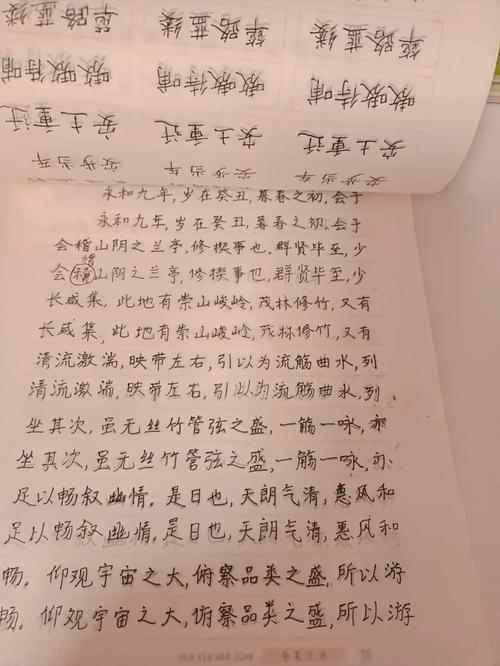 安步当车 安步当车 安步当车
安土重迁 安土重迁 安土重迁
嗷嗷待哺 嗷嗷待哺 嗷嗷待哺
筚路蓝缕 筚路蓝缕 筚路蓝缕
永和九年,岁在癸丑,暮春之初,会于
永和九年,岁在癸丑,暮春之初,会于
会稽山阴之兰亭,修楔事也。群贤毕至,少
稽
会稽山阴之兰亭,修楔事也。群贤毕至,少
长咸集,此地有崇山峻岭,茂林修竹,又有
长咸集,此地有崇山峻岭,茂林修竹,又有
清流激湍,映带左右,引以为流觞曲水,列
清流激湍,映带左右,引以为流觞曲水,列
坐其次,虽无丝竹管弦之盛,一觞一咏,亦
坐其次,虽无丝竹管弦之盛,一觞一咏,亦
足以畅叙幽情。是日也,天朗气清,惠风和
足以畅叙幽情。是日也,天朗气清,惠风和
畅。仰观宇宙之大,俯察品类之盛,所以游
畅。仰观宇宙之大,俯察品类之盛,所以游
HUA XIA WAN JUAN